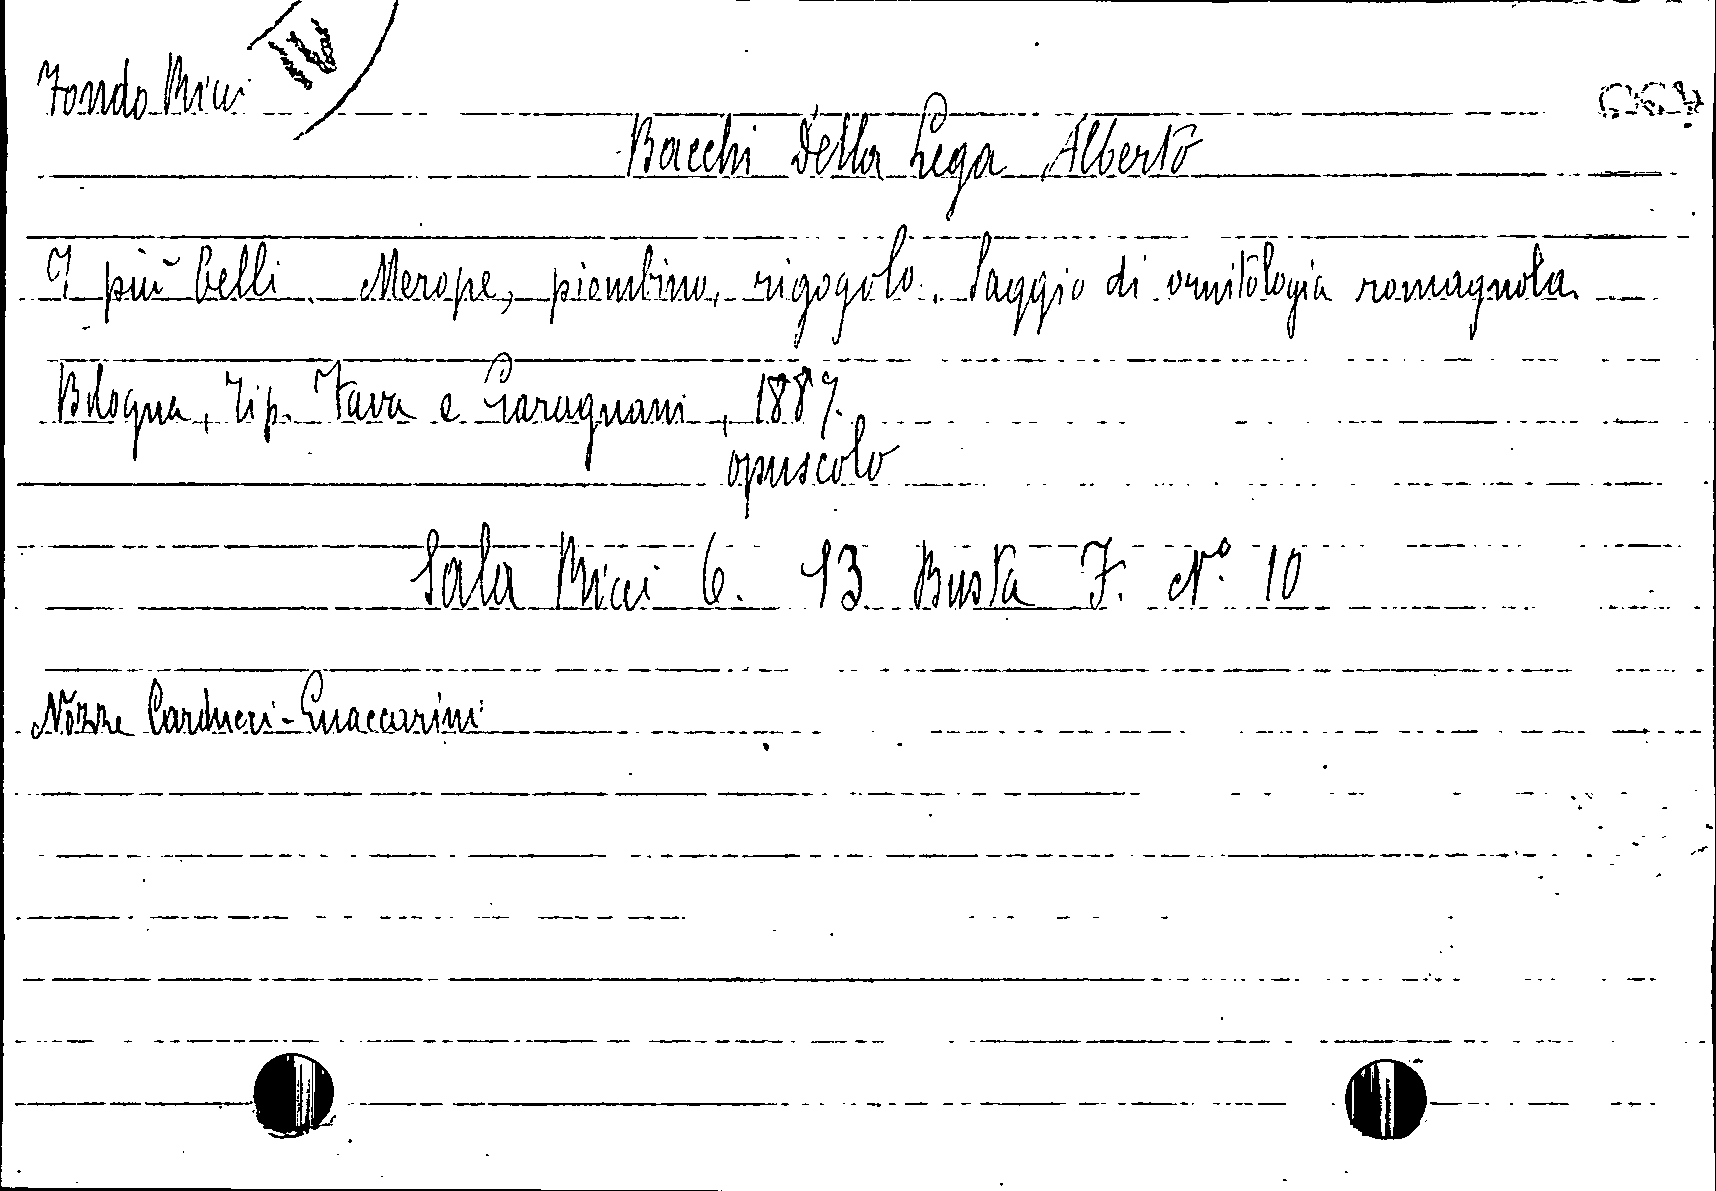 Fondo Ricci
Bacchi Della Lega Alberto
I più belli. Merope, piombino, rigogolo. Saggio di ornitologia romagnola.
Bologna, Tip. Fava e Garagnani, 1887.
opuscolo
Sala Ricci 6. 13 Busta F. N° 10
Nozze Carducci-Gnaccarini